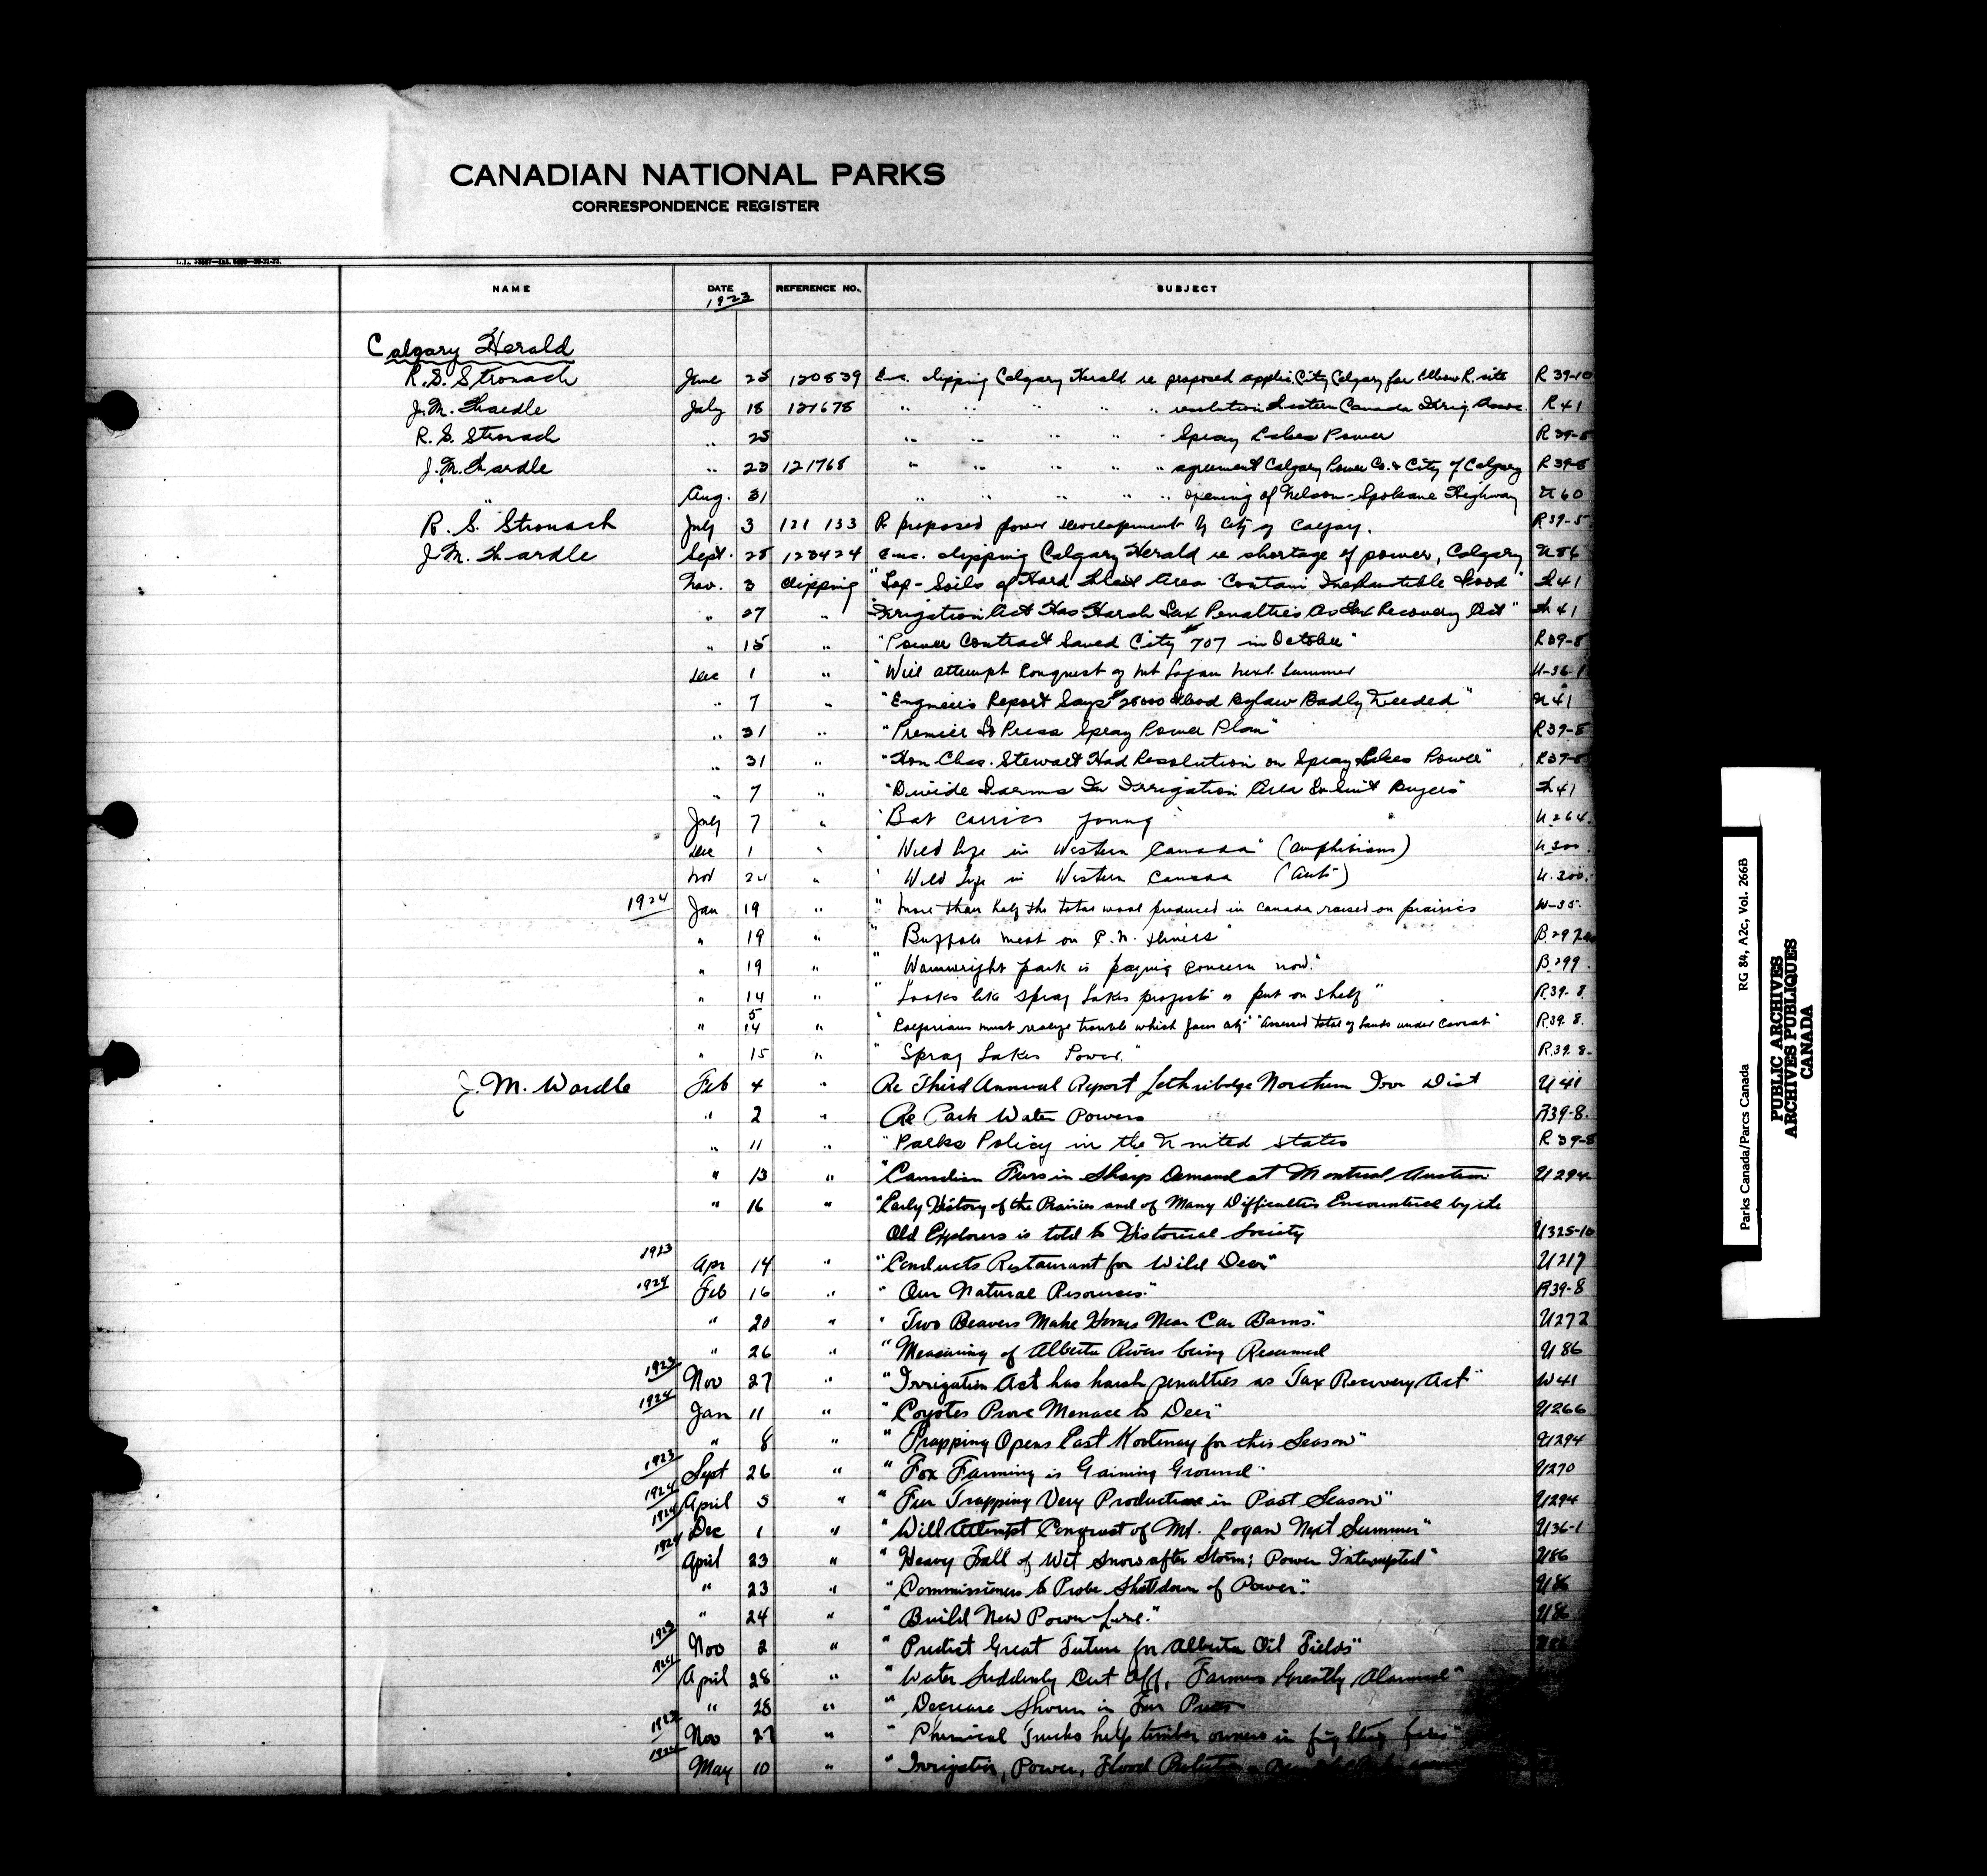 CANADIAN NATIONAL PARKS
CORRESPONDENCE REGISTER
NAME DATE REFERENCE NO. SUBJECT
1923
Calgary Herald
R.S. Stronach June 25 120839 Enc. clipping Calgary Herald re proposed applic City Calgary for Elbow R. site R 39-10
J.M. Wardle July 18 121678 " " " " " resolution Western Canada Irrig. Assoc. R 41
R.S. Stronach " 25 " " " " " Spray Lakes Power R 39-8
J.M. Wardle " 23 121768 " " " " " agreement Calgary Power Co. & City of Calgary R 39-8
" Aug. 31 " " " " " opening of Nelson-Spokane Highway U 60
R. S. Stronach July 3 121 133 R proposed power development by City of Calgary. R 39-5
J.M. Wardle Sept. 25 123424 Enc. clipping Calgary Herald re shortage of power, Calgary U 86
Nov. 3 clipping "Top-Soils of Hard Wheat Area Contain Inexhaustible Food" W 41
" 27 " "Irrigation Act Has Harsh Tax Penalties As Tax Recovery Act" W 41
" 15 " "Power Contract Saved City $707 in October" R 39-8
Dec 1 " "Will attempt Conquest of Mt Logan next Summer U-36-1
" 7 " "Engineers Report Says $25000 Flood Bylaw Badly Needed" U 41
" 31 " "Premier To Press Spray Power Plan" R 39-8
" 31 " "Hon Chas. Stewart Had Resolution on Spray Lakes Power" R 39-8
" 7 " "Divide Farms In Irrigation Area To Suit Buyers" W 41
July 7 " "Bat carries young" U 264.
Dec 1 " "Wild life in Western Canada" (amphibians) U 300.
Nov 24 " "Wild life in Western Canada (Ants) U. 300.
1924 Jan 19 " "more than half the total wool produced in Canada raised on prairies W-35.
" 19 " "Buffalo meat on C.N. diners" B. 29
" 19 " "Wainwright park is paying concern now." B. 299.
" 14 " "Looks like Spray Lakes project is put on shelf" R. 39-8.
" 14 5 " "Calgarians must realize trouble which faces city" "Assessed total of lands under Caveat" R. 39. 8.
" 15 " "Spray Lakes Power." R. 39. 8-
J. M. Wardle Feb 4 " Re Third Annual Report Lethbridge Northern Irr Dist U 41
" 2 " Re Park Water Powers R39-8.
" 11 " "Parks Policy in the United States R 39-8
" 13 " "Canadian Furs in Sharp Demand at Montreal Auction U 294
" 16 " "Early History of the Prairies and of Many Difficulties Encountered by the
Old Explorers is told to Historical Society U325-10
1923 Apr 14 " "Conducts Restaurant for Wild Deer" U217
1924 Feb 16 " "Our Natural Resources." R39-8
" 20 " "Two Beavers Make Homes Near Car Barns." U272
" 26 " "Measuring of Alberta Rivers being Resumed U 86
1923 Nov 27 " "Irrigation Act has harsh penalties as Tax Recovery Act" W 41
1924 Jan 11 " "Coyotes Prove Menace to Deer" U266
" 8 " "Trapping Opens East Kootenay for this Season" U294
1923 Sept 26 " "Fox Farming is Gaining Ground" U270
1924 April 5 " "Fur Trapping Very Productive in Past Season" U294
1924 Dec 1 " "Will Attempt Conquest of Mt. Logan Next Summer" U36-1
1924 April 23 " "Heavy Fall of Wet Snow after Storm; Power Interrupted" U86
" 23 " "Commissioners to Probe Shutdown of Power." U 86
" 24 " "Build New Power-Line." U 86
1923 Nov 2 " "Predict Great Future for Alberta Oil Fields"
1924 April 28 " "Water Suddenly Cut Off, Farmers Greatly Alarmed"
" 28 " "Decrease Shown in Fur Prices
1923 Nov 27 " "Chemical Trucks help timber owners in fighting fires"
1924 May 10 " "Irrigation, Power, Flood Protection
Parks Canada/Parcs Canada RG 84, A2c, Vol. 266B
PUBLIC ARCHIVES
ARCHIVES PUBLIQUES
CANADA